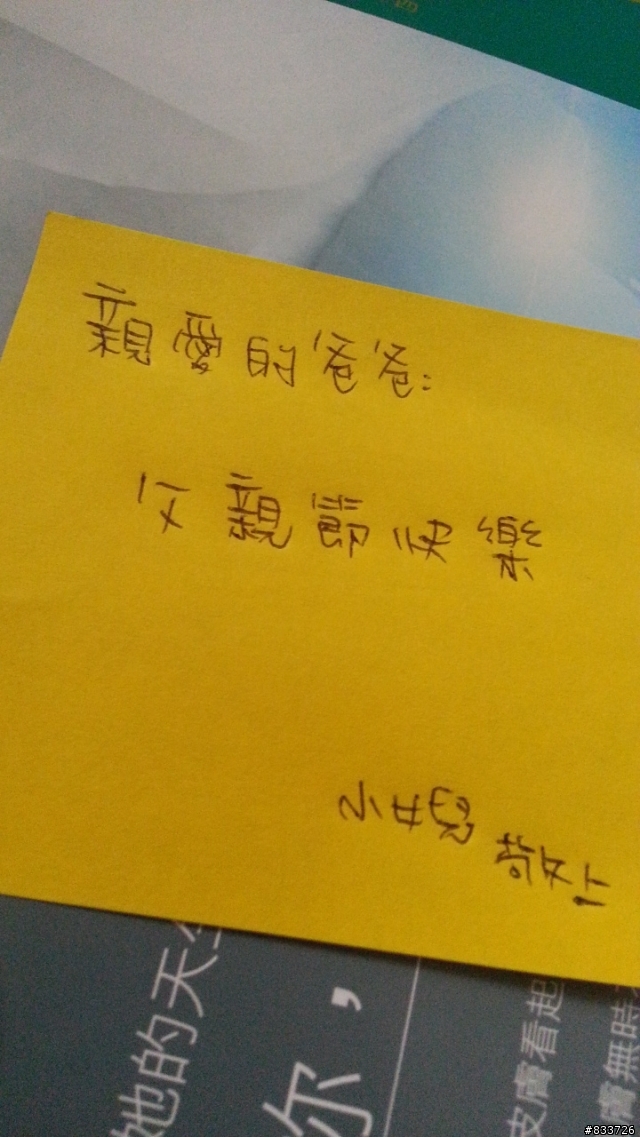 親愛的爸爸:
父親節快樂
小女兒
敬上
她的天
尔,
皮膚看起
膚無時
#833726